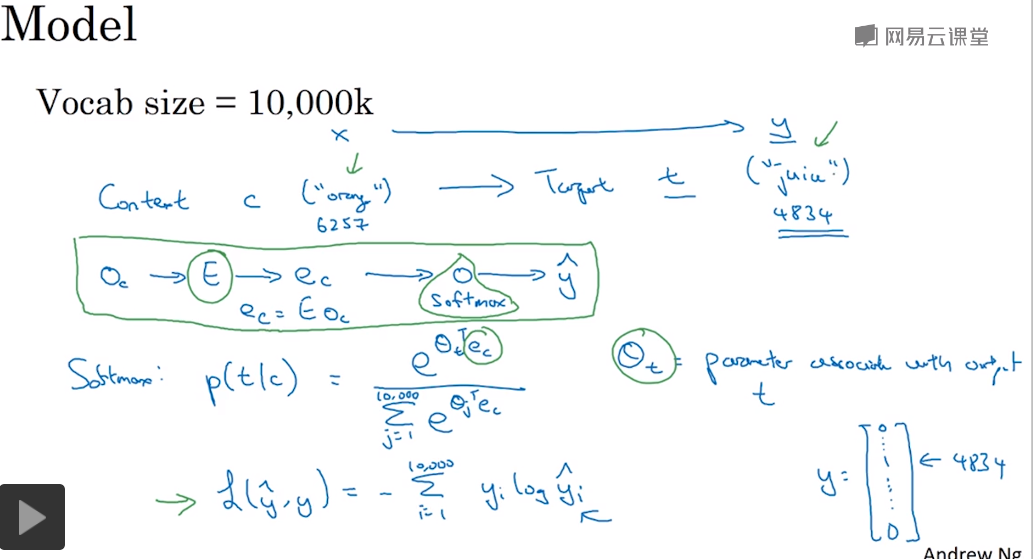 Model
网易云课堂
Vocab size = 10,000k
x → y
Content c ("orange") → Target t ("juice")
6257 4834
O_c → E → e_c → O → ŷ
softmax
e_c = E O_c
Softmax: p(t|c) = e^{θ_t^T e_c} / Σ_{j=1}^{10,000} e^{θ_j^T e_c}
θ_t = parameter associated with output t
ℒ(ŷ, y) = - Σ_{i=1}^{10,000} y_i log ŷ_i
y = [0 ⋮ 1 ⋮ 0] ← 4834
Andrew Ng